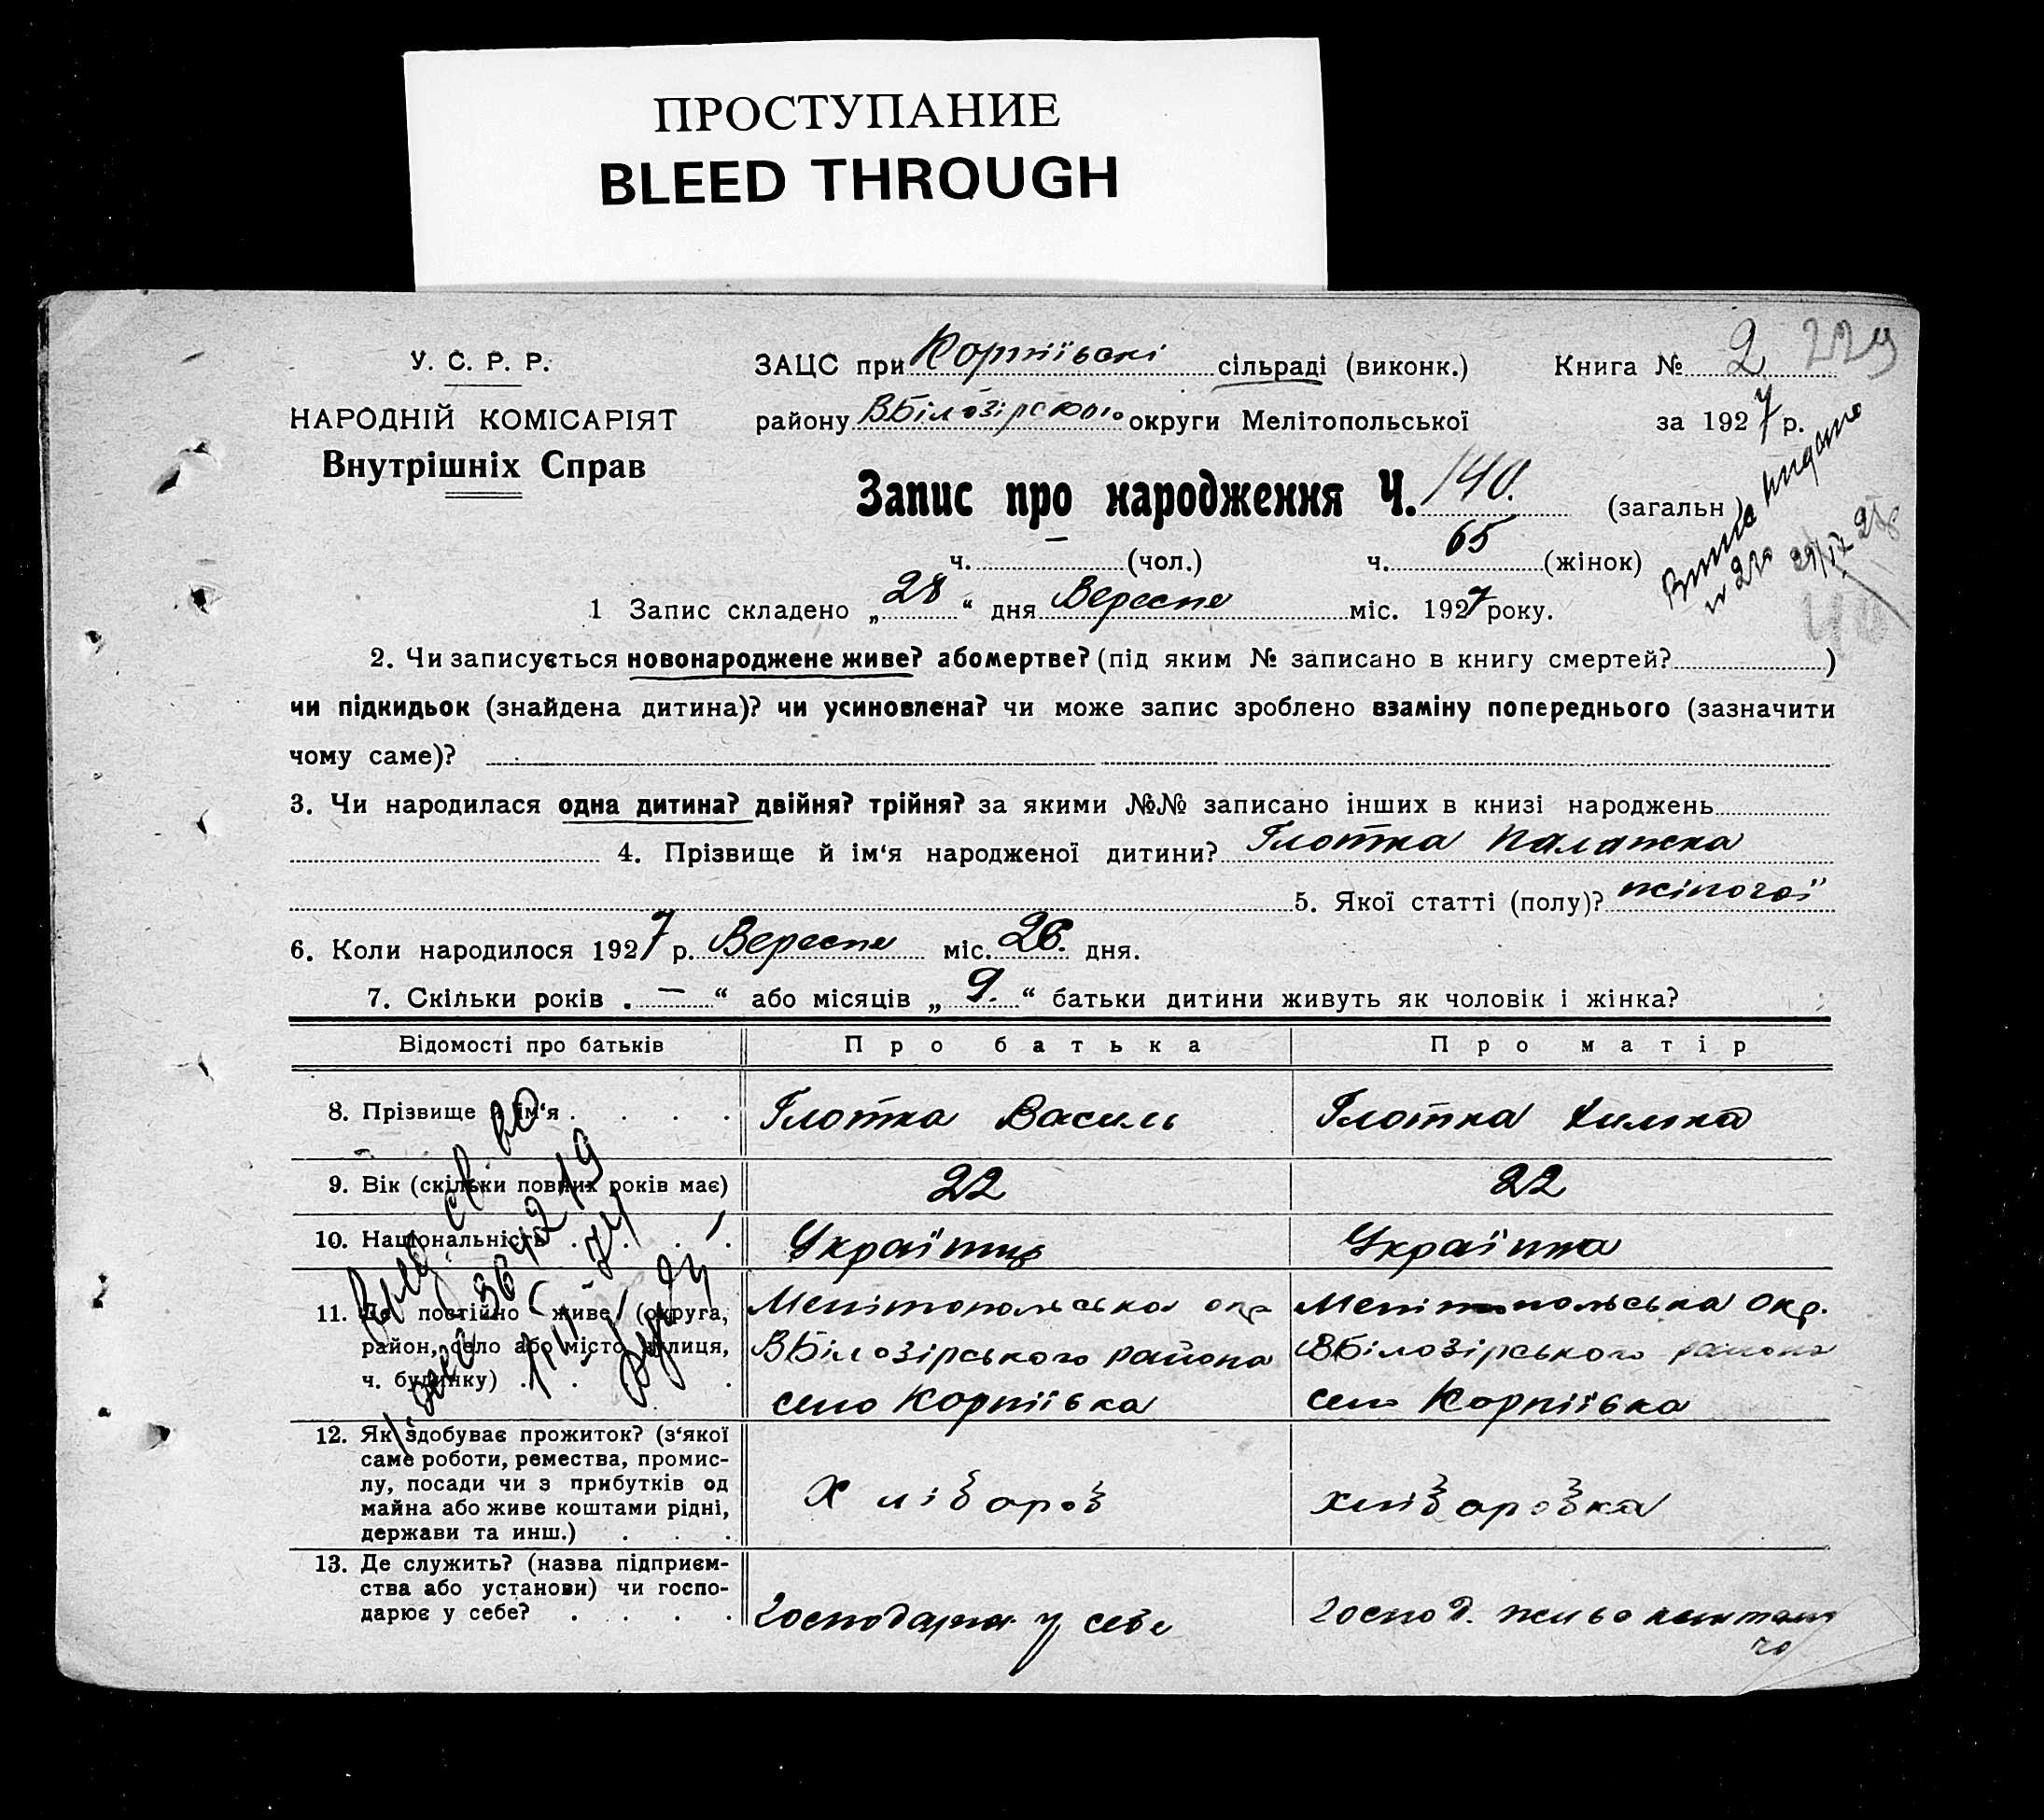 ПРОСТУПАНИЕ
BLEED THROUGH
У. С. Р. Р.
НАРОДНІЙ КОМІСАРІЯТ
Внутрішніх Справ
ЗАЦС при Корніївскі сільраді (виконк.)
району ВБілозірського округи Мелітопольської
Книга № 2 229
за 1927 р.
Запис про народження Ч. 140. (загальн.)
ч. — (чол.) ч. 65 (жінок)
1 Запис складено „28“ дня Вересня міс. 1927 року.
2. Чи записується новонароджене живе? або мертве? (під яким № записано в книгу смертей? )
чи підкидьок (знайдена дитина)? чи усиновлена? чи може запис зроблено взаміну попереднього (зазначити
чому саме)?
3. Чи народилася одна дитина? двійня? трійня? за якими №№ записано інших в книзі народжень
4. Прізвище й ім‘я народженої дитини? Глотка Палажка
5. Якої статті (полу)? жіночої
6. Коли народилося 1927 р. Вересня міс. 26. дня.
7. Скільки років „—“ або місяців „9.“ батьки дитини живуть як чоловік і жінка?
Відомості про батьків Про батька Про матір
8. Прізвище й ім‘я Глотка Василь Глотка Килина
9. Вік (скільки повних років має) 22 22
10. Національність Українець Українка
11. Де постійно живе (округа,
район, село або місто, вулиця,
ч. будинку)
Мелітопольська окр
ВБілозірського района
село Корніївка
Мелітопольська окр.
ВБілозірського района
село Корніївка
12. Як здобуває прожиток? (з‘якої
саме роботи, ремества, промис-
лу, посади чи з прибутків од
майна або живе коштами рідні,
держави та инш.)
Хлібороб
хліборобка
13. Де служить? (назва підприєм-
ства або установи) чи госпо-
дарює у себе?
Господарює у себе